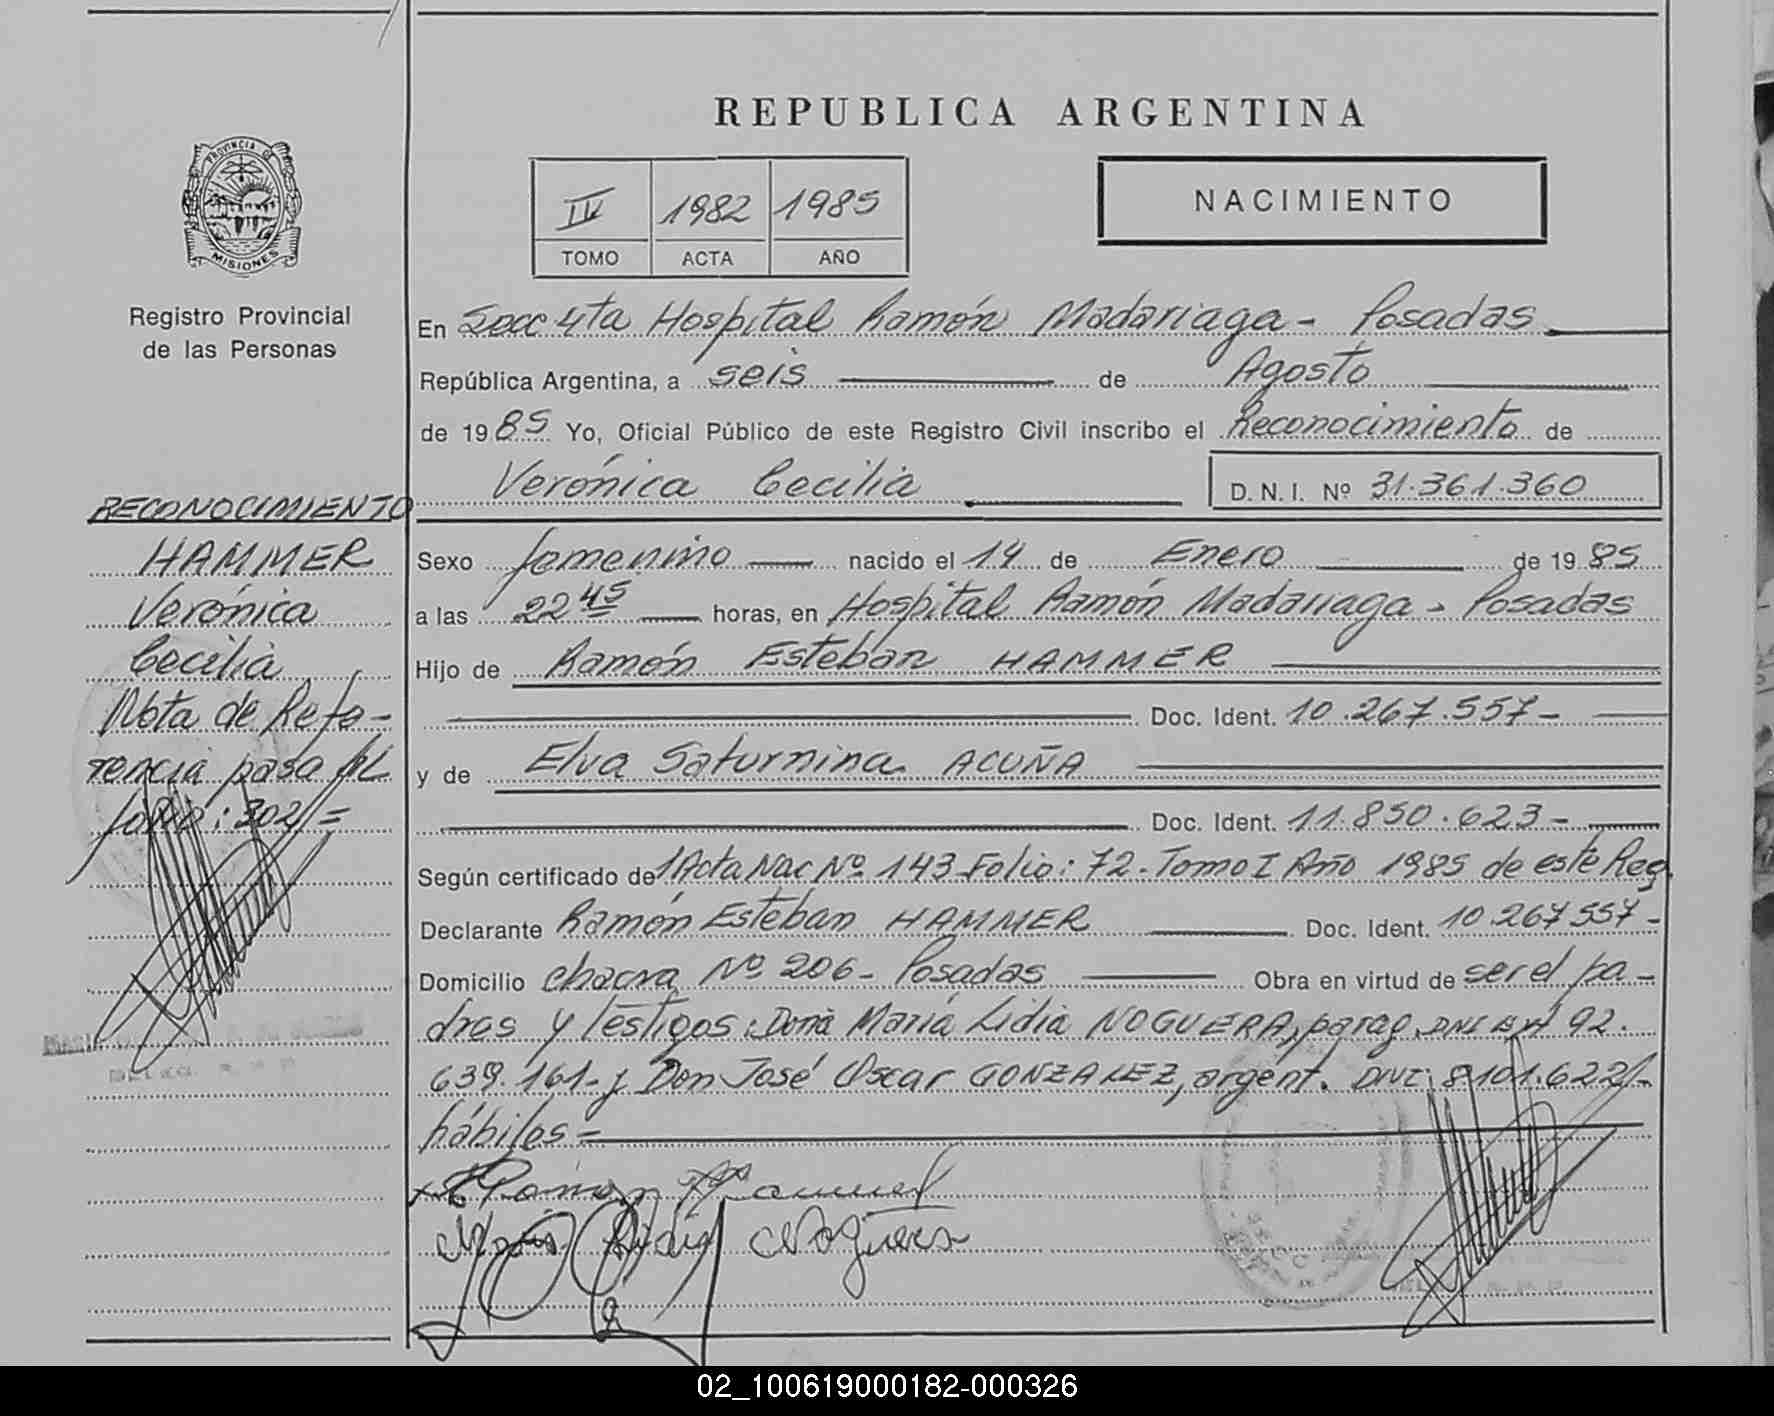 REPUBLICA ARGENTINA
PROVINCIA DE
MISIONES
Registro Provincial
de las Personas
IV 1982 1985
TOMO ACTA AÑO
NACIMIENTO
En Secc 4ta Hospital Ramón Madariaga - Posadas
República Argentina, a seis de Agosto
de 1985 Yo, Oficial Público de este Registro Civil inscribo el Reconocimiento de
Verónica Cecilia D.N.I. Nº 31.361.360
RECONOCIMIENTO
HAMMER
Verónica
Cecilia
Nota de Refe-
rencia pasa al
folio: 302/=
Sexo femenino nacido el 14 de Enero de 1985
a las 22 45 horas, en Hospital Ramón Madariaga - Posadas
Hijo de Ramón Esteban HAMMER
Doc. Ident. 10.267.557-
y de Elva Saturnina ACUÑA
Doc. Ident. 11.850.623-
Según certificado de Acta Nac Nº 143 Folio: 72. Tomo I Año 1985 de este Reg.
Declarante Ramón Esteban HAMMER Doc. Ident. 10.267.557-
Domicilio chacra Nº 206- Posadas Obra en virtud de ser el pa-
dres y testigos: Doña María Lidia NOGUERA, parag. DNI 92.
639.161- y Don José Oscar GONZALEZ, argent. DNI: 8.101.622/-
hábiles=
Ramon Hammer
Maria Lidia Noguera
02_100619000182-000326